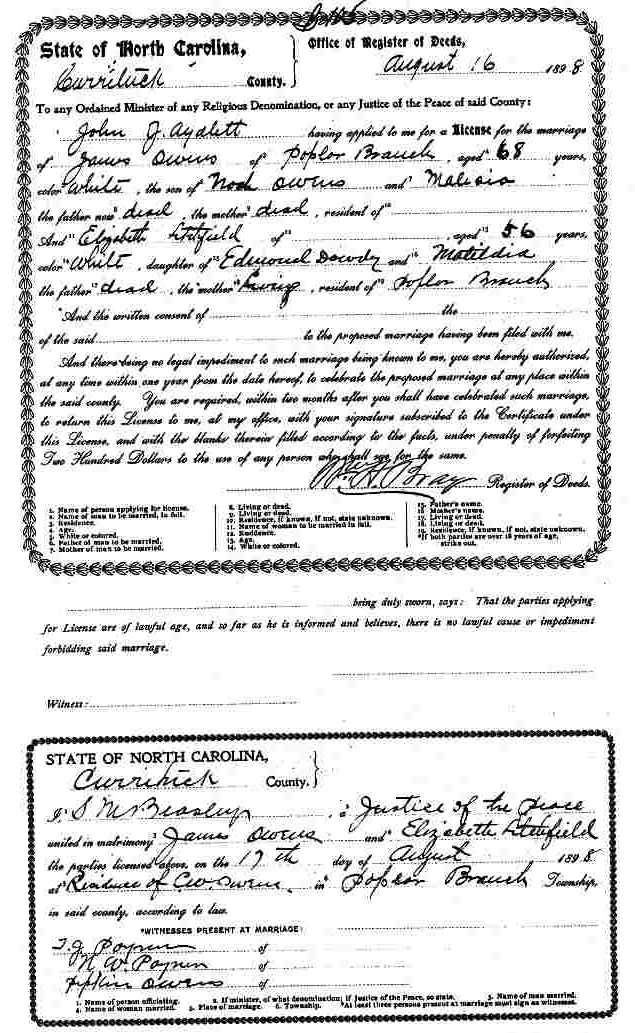 State of North Carolina,
Office of Register of Deeds,
Currituck County.
August 16 1898
To any Ordained Minister of any Religious Denomination, or any Justice of the Peace of said County:
John J. Aydlett having applied to me for a License for the marriage
of James Owens of Poplor Branch, aged 68 years,
color White, the son of Noah Owens and Malisia
the father now dead, the mother dead, resident of
And Elizabeth Litchfield of aged 56 years,
color White, daughter of Edmond Dowdy and Matildia
the father dead, the mother living, resident of Poplor Branch
And the written consent of the
of the said to the proposed marriage having been filed with me.
And there being no legal impediment to such marriage being known to me, you are hereby authorized,
at any time within one year from the date hereof, to celebrate the proposed marriage at any place within
the said county. You are required, within two months after you shall have celebrated such marriage,
to return this License to me, at my office, with your signature subscribed to the Certificate under
this License, and with the blanks therein filled according to the facts, under penalty of forfeiting
Two Hundred Dollars to the use of any person who shall sue for the same.
Bray Register of Deeds.
1. Name of person applying for license.
2. Name of man to be married, in full.
3. Residence.
4. Age.
5. White or colored.
6. Father of man to be married.
7. Mother of man to be married.
8. Living or dead.
9. Living or dead.
10. Residence, if known, if not, state unknown.
11. Name of woman to be married in full.
12. Residence.
13. Age.
14. White or colored.
15. Father's name.
16. Mother's name.
17. Living or dead.
18. Living or dead.
19. Residence, if known, if not, state unknown.
*If both parties are over 18 years of age,
strike out.
being duly sworn, says: That the parties applying
for License are of lawful age, and so far as he is informed and believes, there is no lawful cause or impediment
forbidding said marriage.
Witness:
STATE OF NORTH CAROLINA,
Currituck County.
I, S M Beasley, a Justice of the peace
united in matrimony James Owens and Elizabeth Litchfield
the parties licensed above, on the 17th day of August 1898
at Residence of C W Owens, in Poplor Branch Township,
in said county, according to law.
*WITNESSES PRESENT AT MARRIAGE:
T. J. Poyner of
N. W. Poyner of
Owens of
1. Name of person officiating. 2. If minister, of what denomination; if Justice of the Peace, so state. 3. Name of man married.
4. Name of woman married. 5. Place of marriage. 6. Township. *At least three persons present at marriage must sign as witnesses.